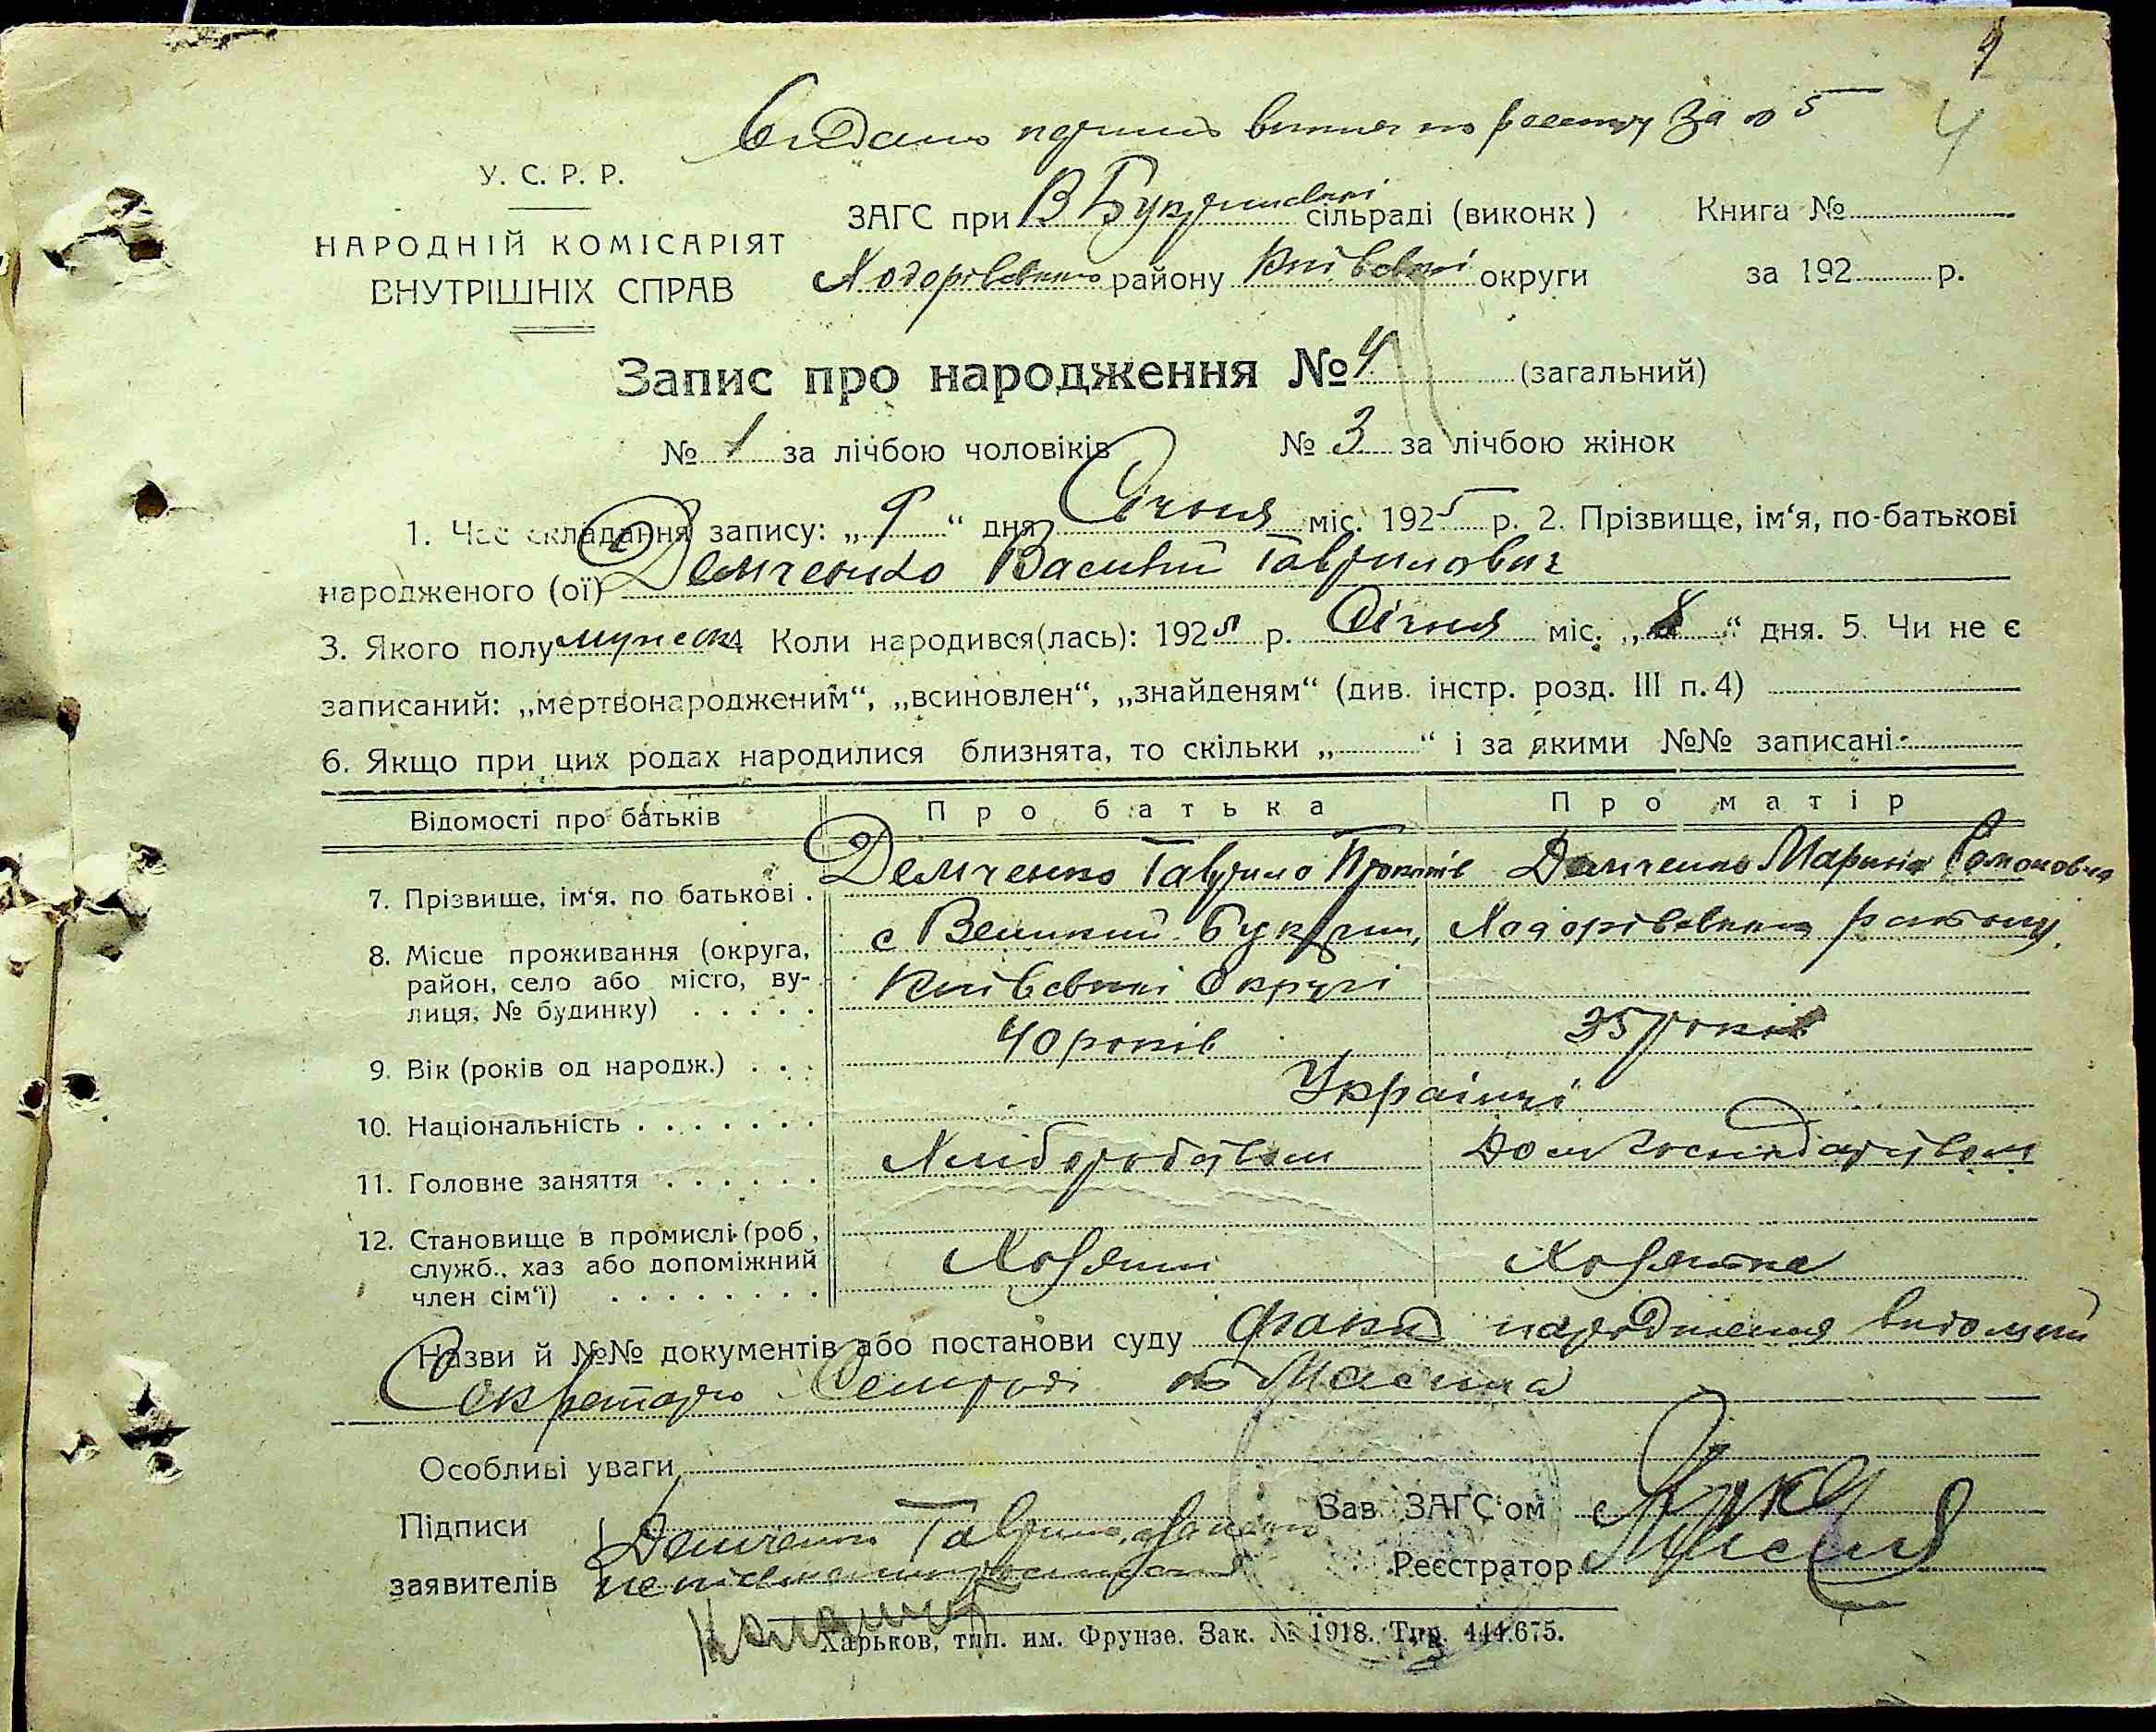 4
Видано перший витяг по реєстру за № 5
4
У. С. Р. Р.
НАРОДНІЙ КОМІСАРІЯТ
ВНУТРІШНІХ СПРАВ
ЗАГС при В Букринській сільраді (виконк) Книга №
Ходорівського району Київської округи за 192 р.
Запис про народження № 4 (загальний)
№ 1 за лічбою чоловіків № 3 за лічбою жінок
1. Час складання запису: „9“ дня Січня міс. 1925 р. 2. Прізвище, ім‘я, по-батькові
народженого (ої) Демченко Василий Гаврилович
3. Якого полу мужеска 4 Коли народився(лась): 1925 р. Січня міс. „8“ дня. 5. Чи не є
записаний: „мертвонародженим“, „всиновлен“, „знайденям“ (див. інстр. розд. III п. 4)
6. Якщо при цих родах народилися близнята, то скільки „ “ і за якими №№ записані
Відомості про батьків Про батька Про матір
7. Прізвище, ім‘я, по батькові . Демченко Гаврило Демченко Марина
8. Місце проживання (округа, с Великий Букрин, Ходорівського району,
район, село або місто, ву- Київської Округі
лиця, № будинку) . . . . .
9. Вік (років од народж.) . . . 40 років 35 років
10. Національність . . . . . . . Українці
11. Головне заняття . . . . . . Хліборобством Дом господарством
12. Становище в промислі (роб, Хозяин Хозяйка
служб., хаз або допоміжний
член сім‘ї) . . . . . . . .
Назви й №№ документів або постанови суду факт народження видомий
Секретарю
Особливі уваги
Підписи Демченко Гаврило Зав ЗАГС‘ом
заявителів Реєстратор
Харьков, тип. им. Фрунзе. Зак. № 1918. Тир. 444.675.